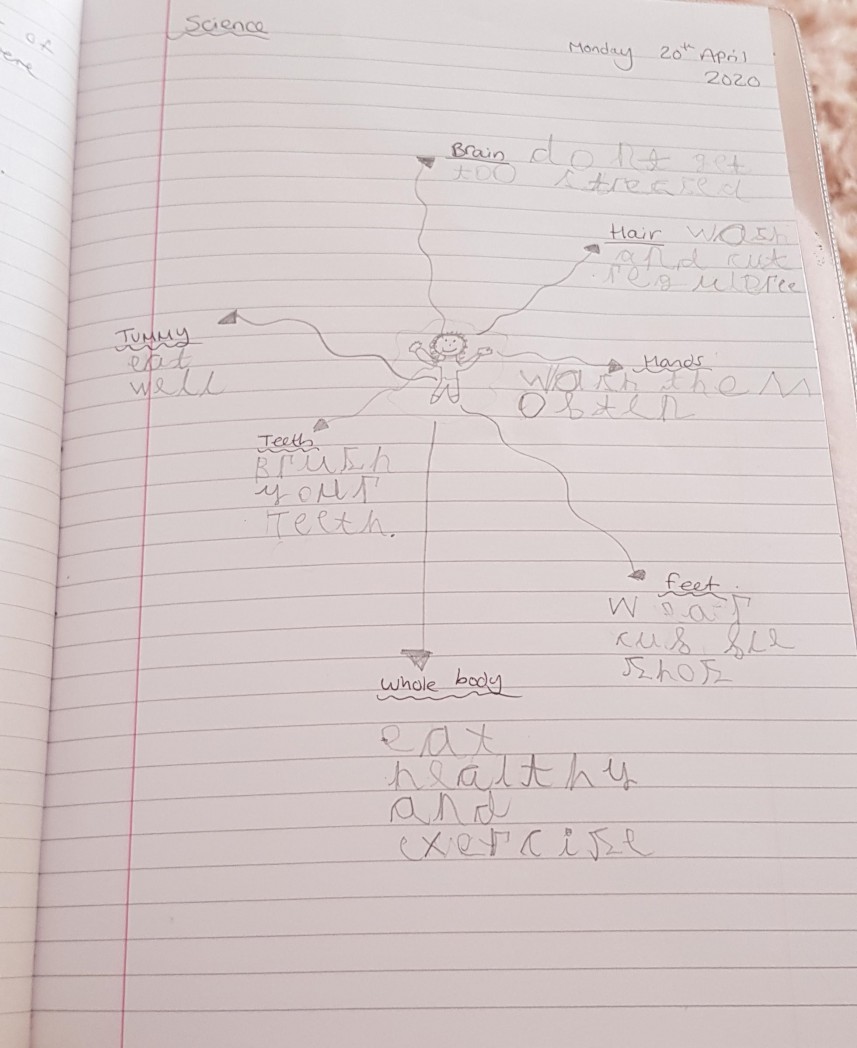 of
ene
Science
Monday 20th April
2020
Brain dont get
too streced
Hair wash
and cut
regulree
Hands
wash them
often
Tummy
eat
well
Teeth
Brush
your
Teeth.
feet
W
cusble
shos
whole body
eat
healthy
and
exercise